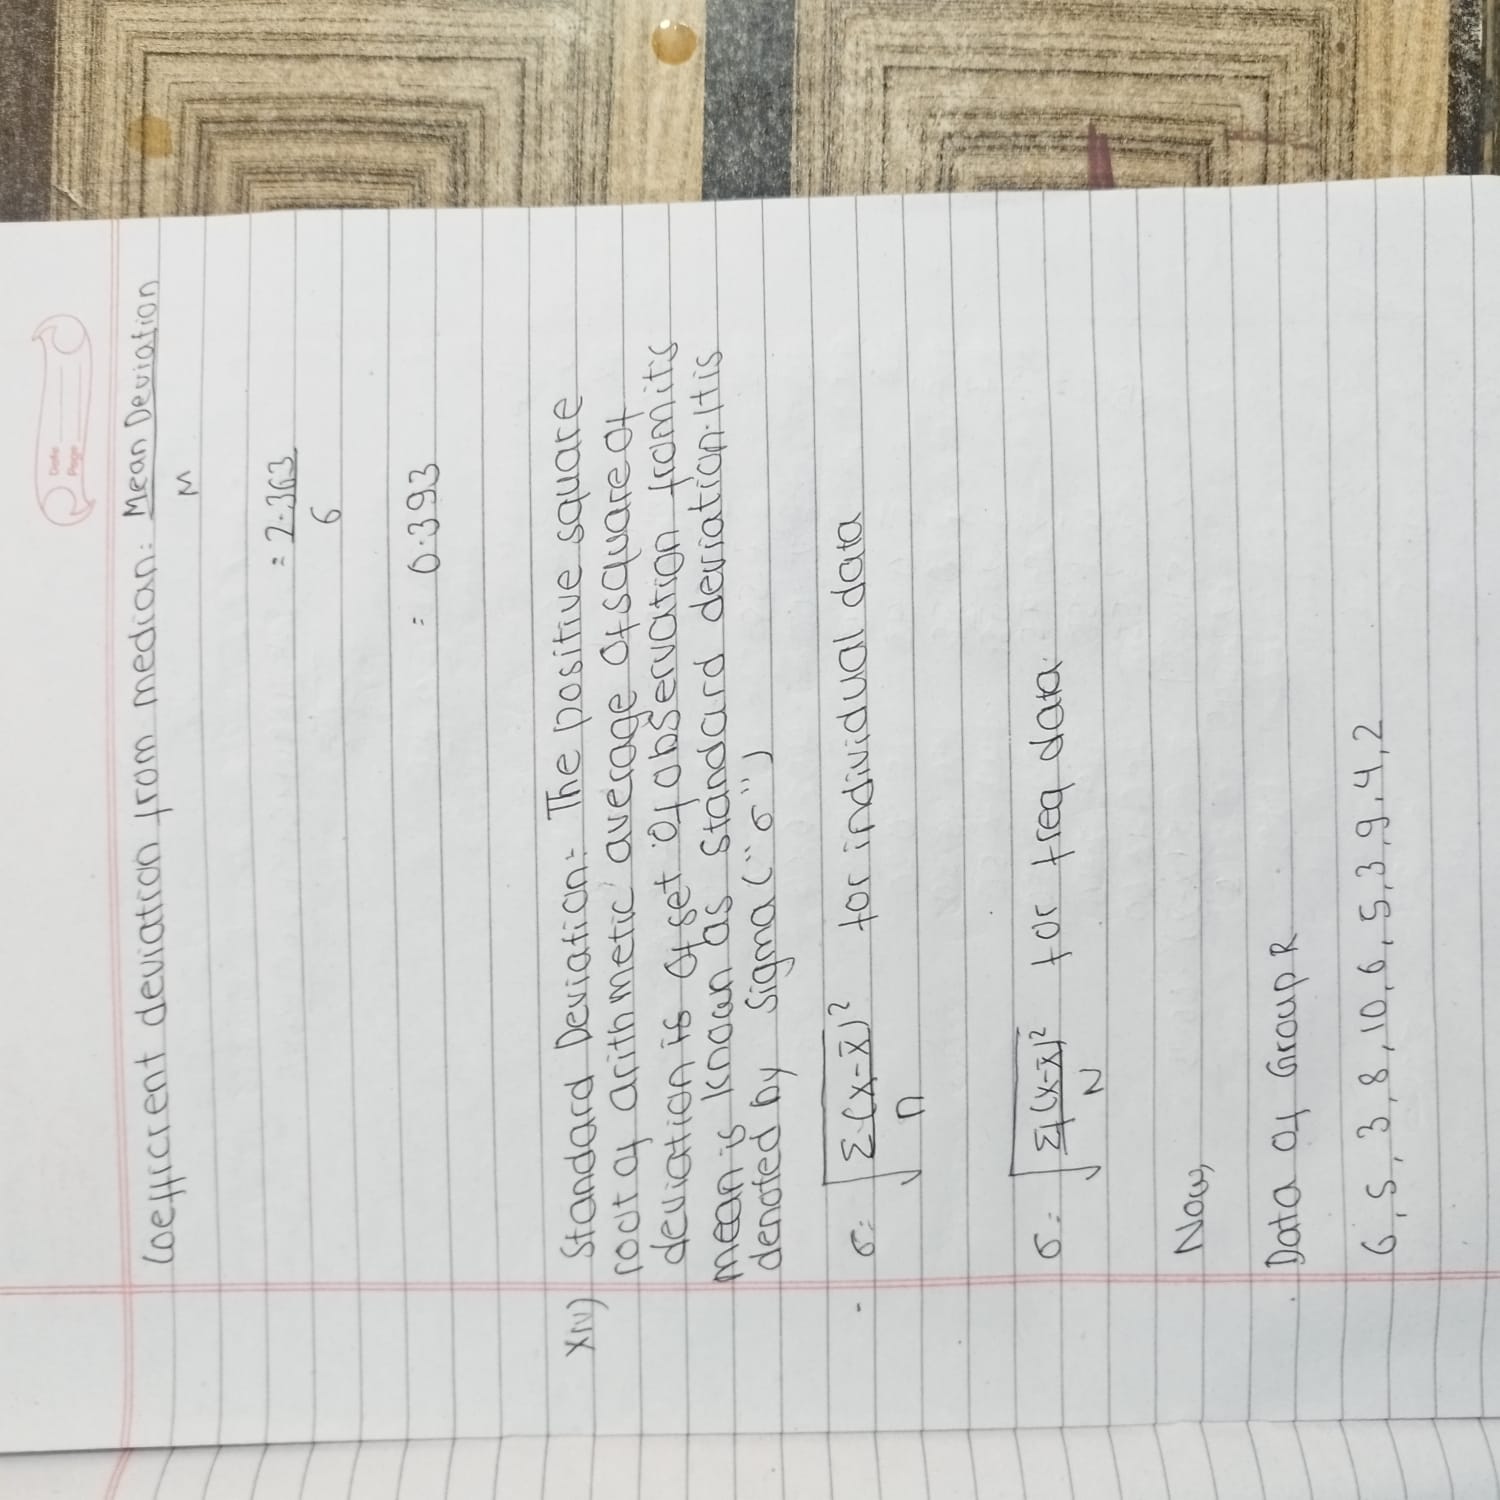 Date
Page
Coefficient deviation from median: Mean Deviation
M
= 2.363
6
= 0.393
XIV) Standard Deviation:- The positive square
root of arithmetic average of square of
deviation is of set of observation from its
mean is known as standard deviation. It is
denoted by Sigma ("σ")
σ = √ Σ(x-x̄)² for individual data
n
σ = √ Σf(x-x̄)² for freq data.
N
Now,
Data of Group R
6, 5, 3, 8, 10, 6, 5, 3, 9, 4, 2